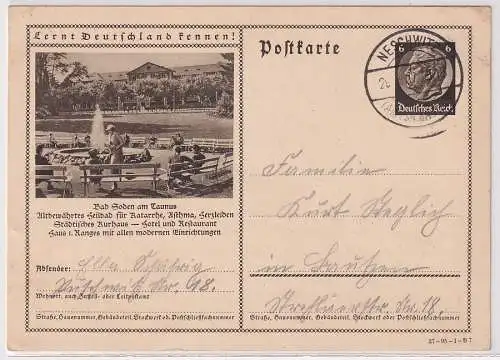 Lernt Deutschland kennen!
Postkarte
NESCHWITZ
6 6
Deutsches Reich
Bad Soden am Taunus
Altbewährtes Heilbad für Katarrhe, Asthma, Herzleiden
Städtisches Kurhaus — Hotel und Restaurant
Haus 1. Ranges mit allen modernen Einrichtungen
Absender:
Wohnort, auch Zustell- oder Leitpostamt
Straße, Hausnummer, Gebäudeteil, Stockwerk od. Postschließfachnummer
Familie
Kurt Steglich
in Bautzen
Nr. 18.
Straße, Hausnummer, Gebäudeteil, Stockwerk oder Postschließfachnummer